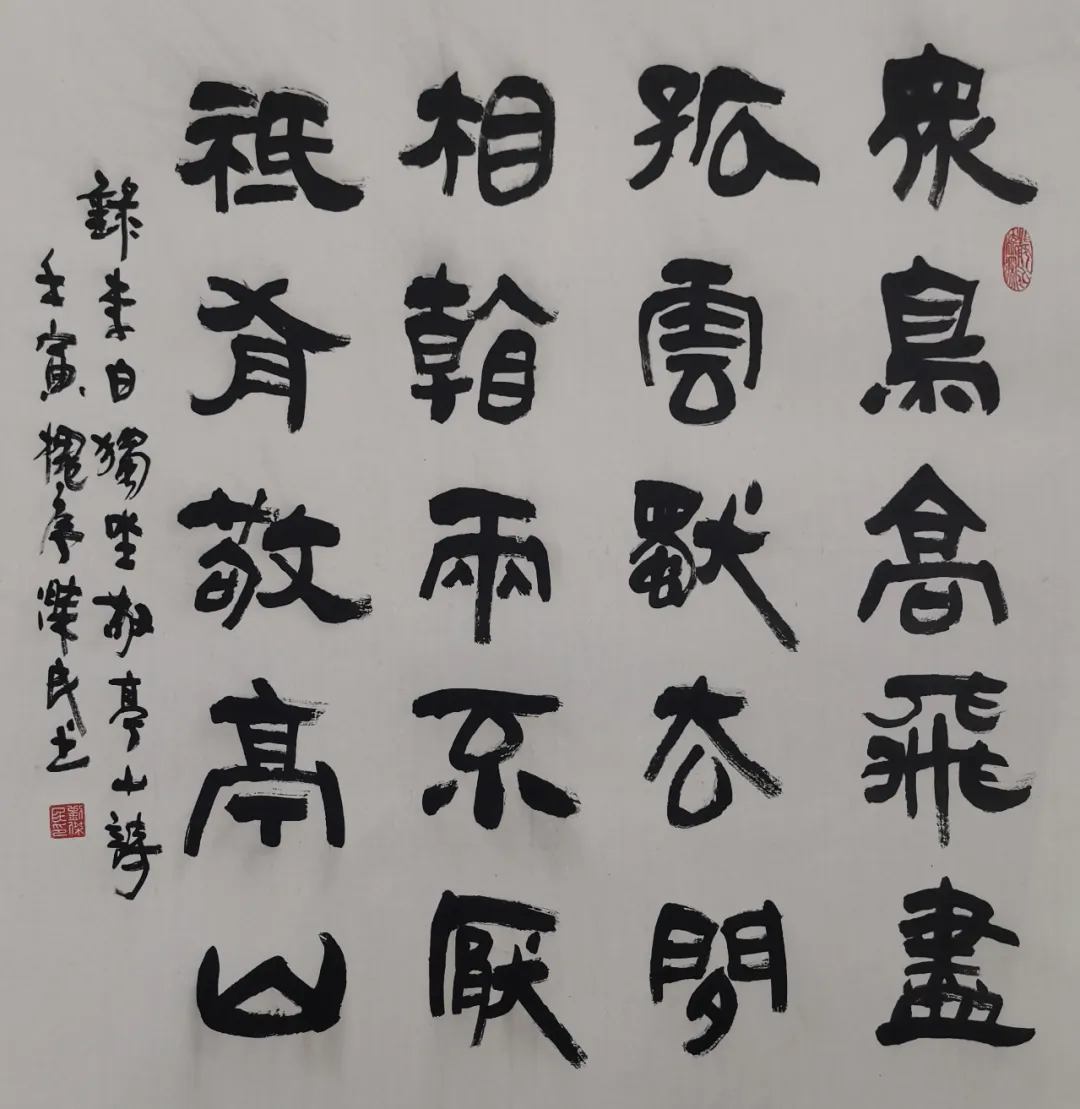 眾鳥高飛盡
孤雲獨去閒
相看兩不厭
祗有敬亭山
錄李白獨坐敬亭山詩
壬寅槐序傑民书
劉傑民印